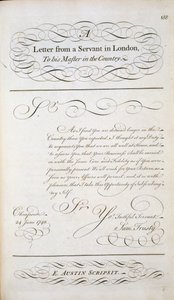 A
Letter from a Servant in London,
To his Master in the Country.
Sr.
As I find You are detained longer in the
Country than You expected, I thought it my Duty
to acquaint You that we are all well at Home, and
to assure You that Your Business shall be carried
on with the same Care and Fidelity as if You were
personally present. We wish for Your return as
soon as Your Affairs will permit, and it is with
pleasure that I take this Opportunity of subscribing
my Self
Sr.
Yr. Faithful Servant
Sam. Trusty
Cheapside
24 June 1740
E. AUSTIN SCRIPSIT.